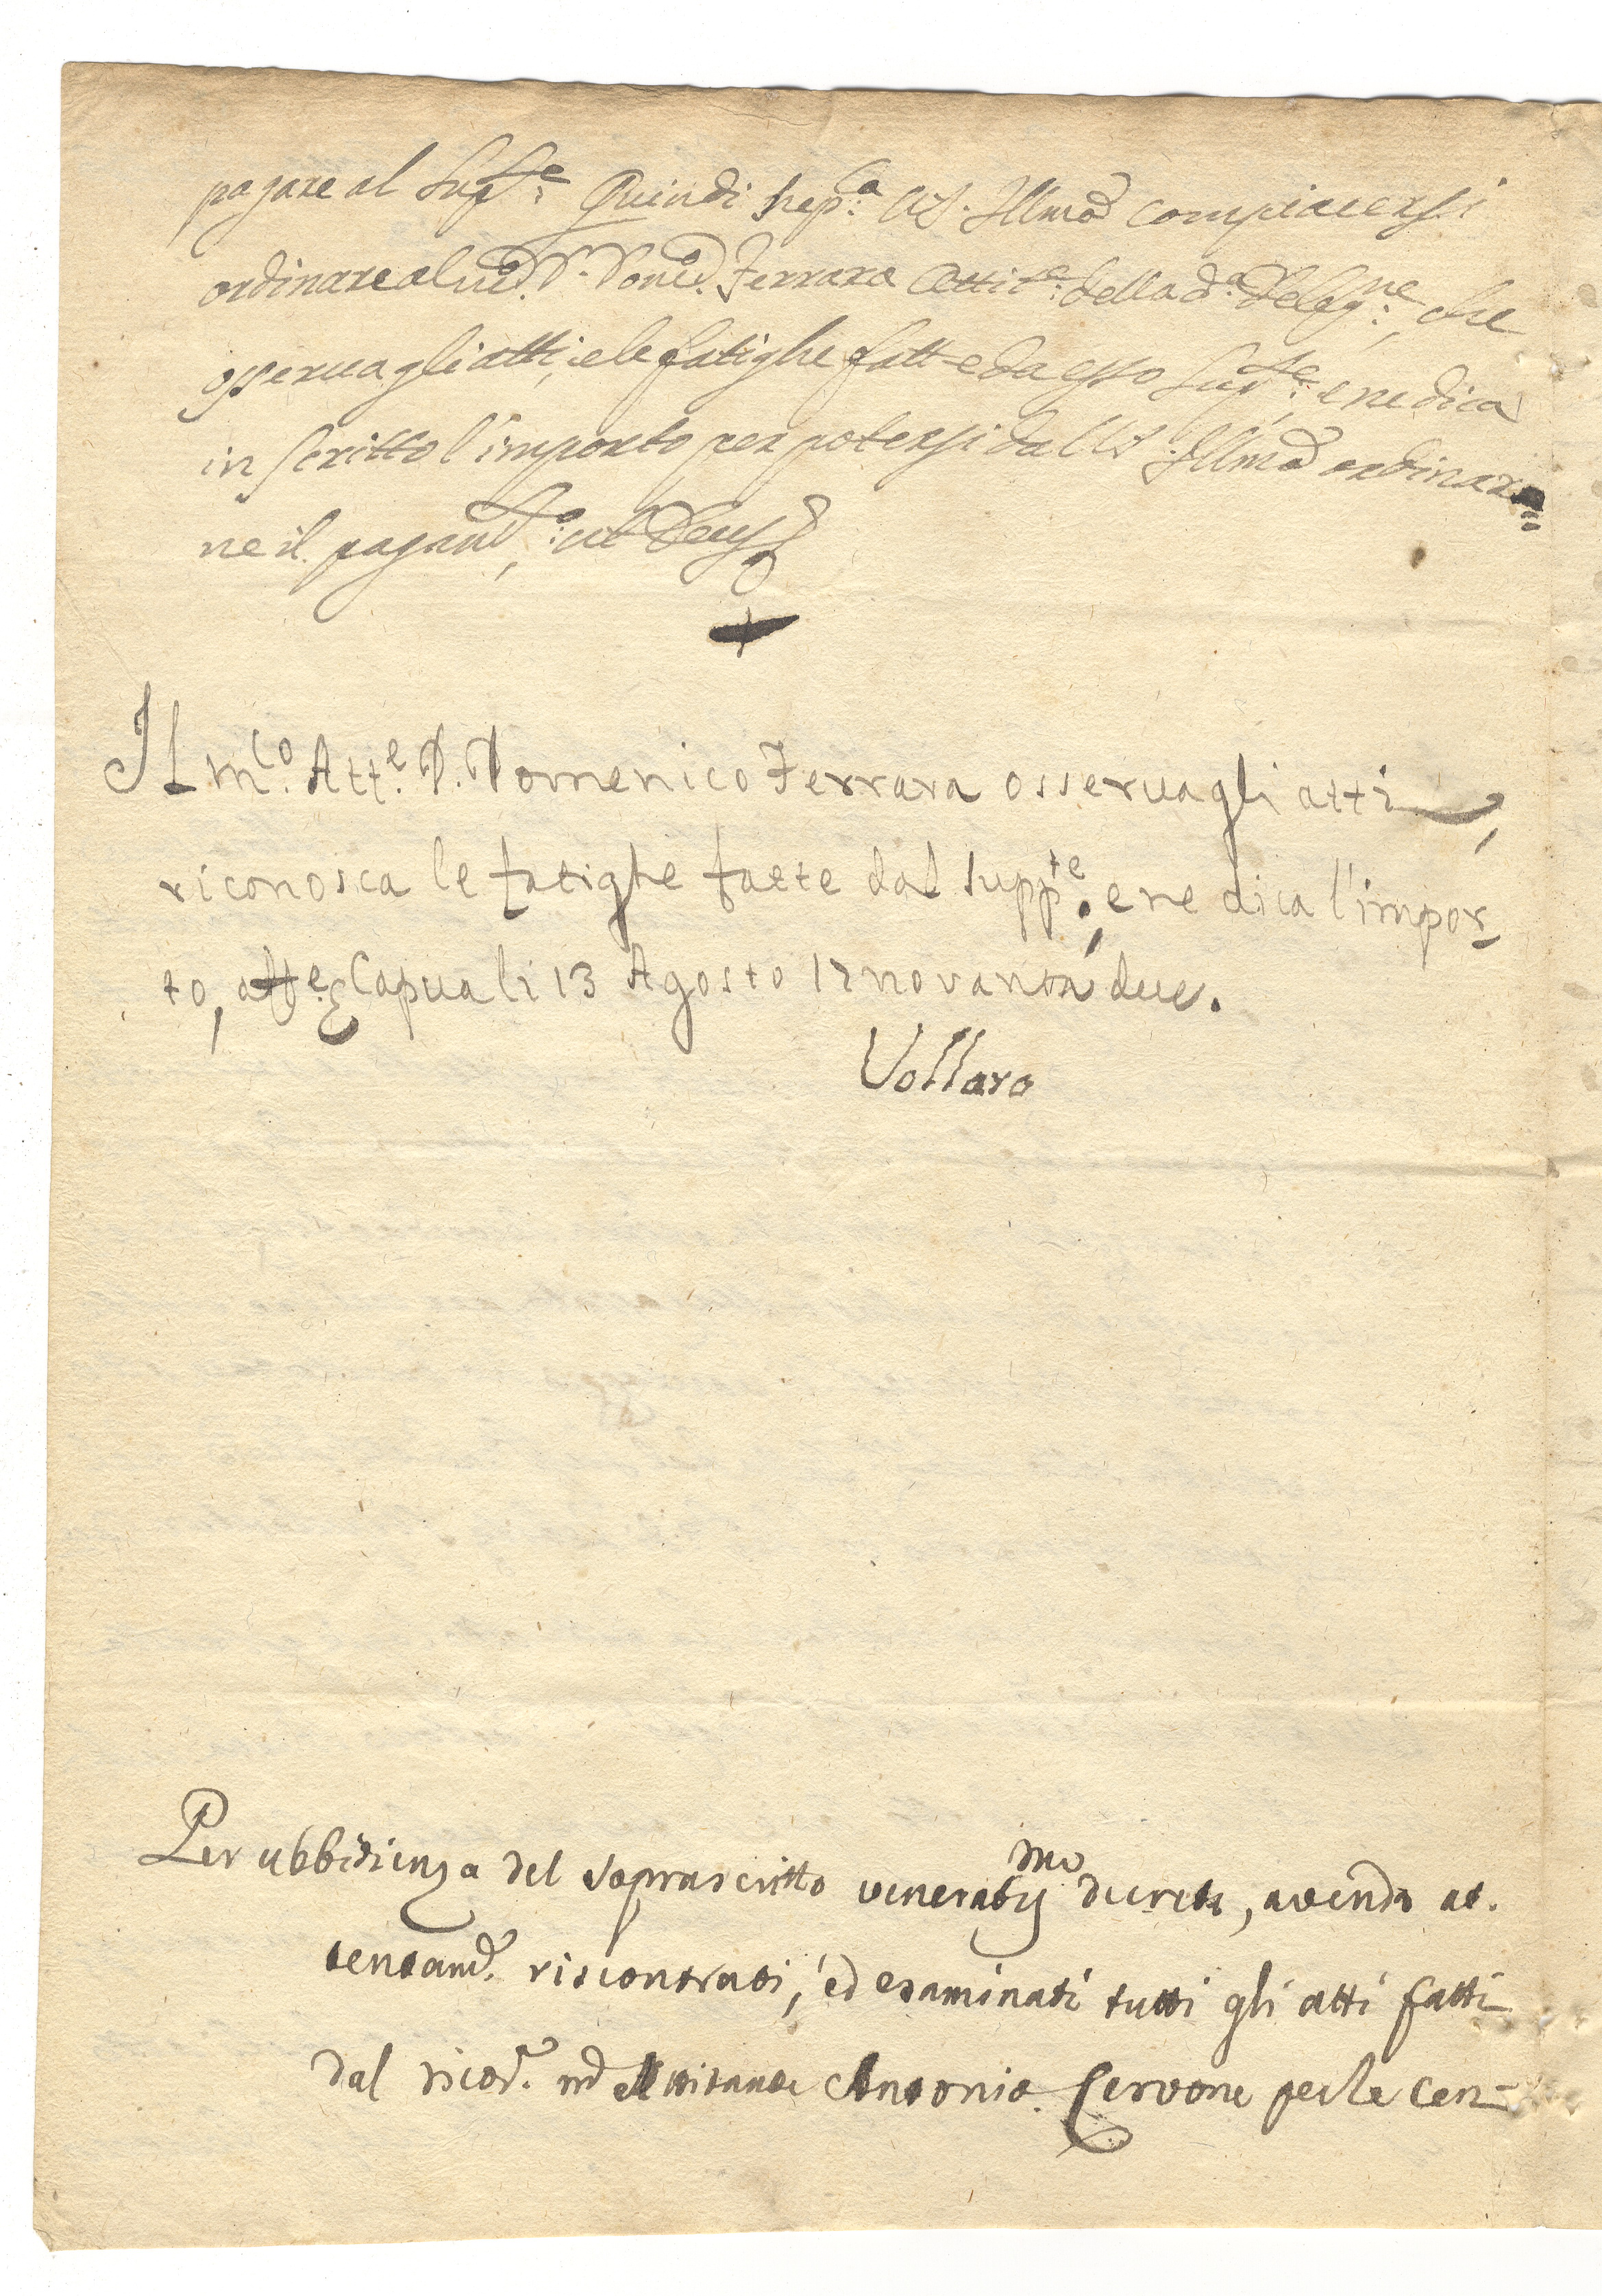 pagare al Supte: Quindi supca V.S. Illma compiacersi
ordinare al D. Dom. Ferrara Attite: della da Delegne: che
osserva gli atti, e le fatighe fatte da esso Supte: e ne dica
in scritto l'importo per potersi da V.S. Illma ordinar=
ne il pagamto: ut Deus
Il mco. Atte. D. Domenico Ferrara osserva gli atti,
riconosca le fatighe fatte dal suppte., e ne dica l'impor-
to, Capua li 13 Agosto 17novanta due.
Vollaro
Per ubbidienza del soprascritto decreto, avendo at.
tentam. riscontrati, ed esaminati tutti gli atti fatti
dal ricor. Attitante Antonio Cervone per le cen-